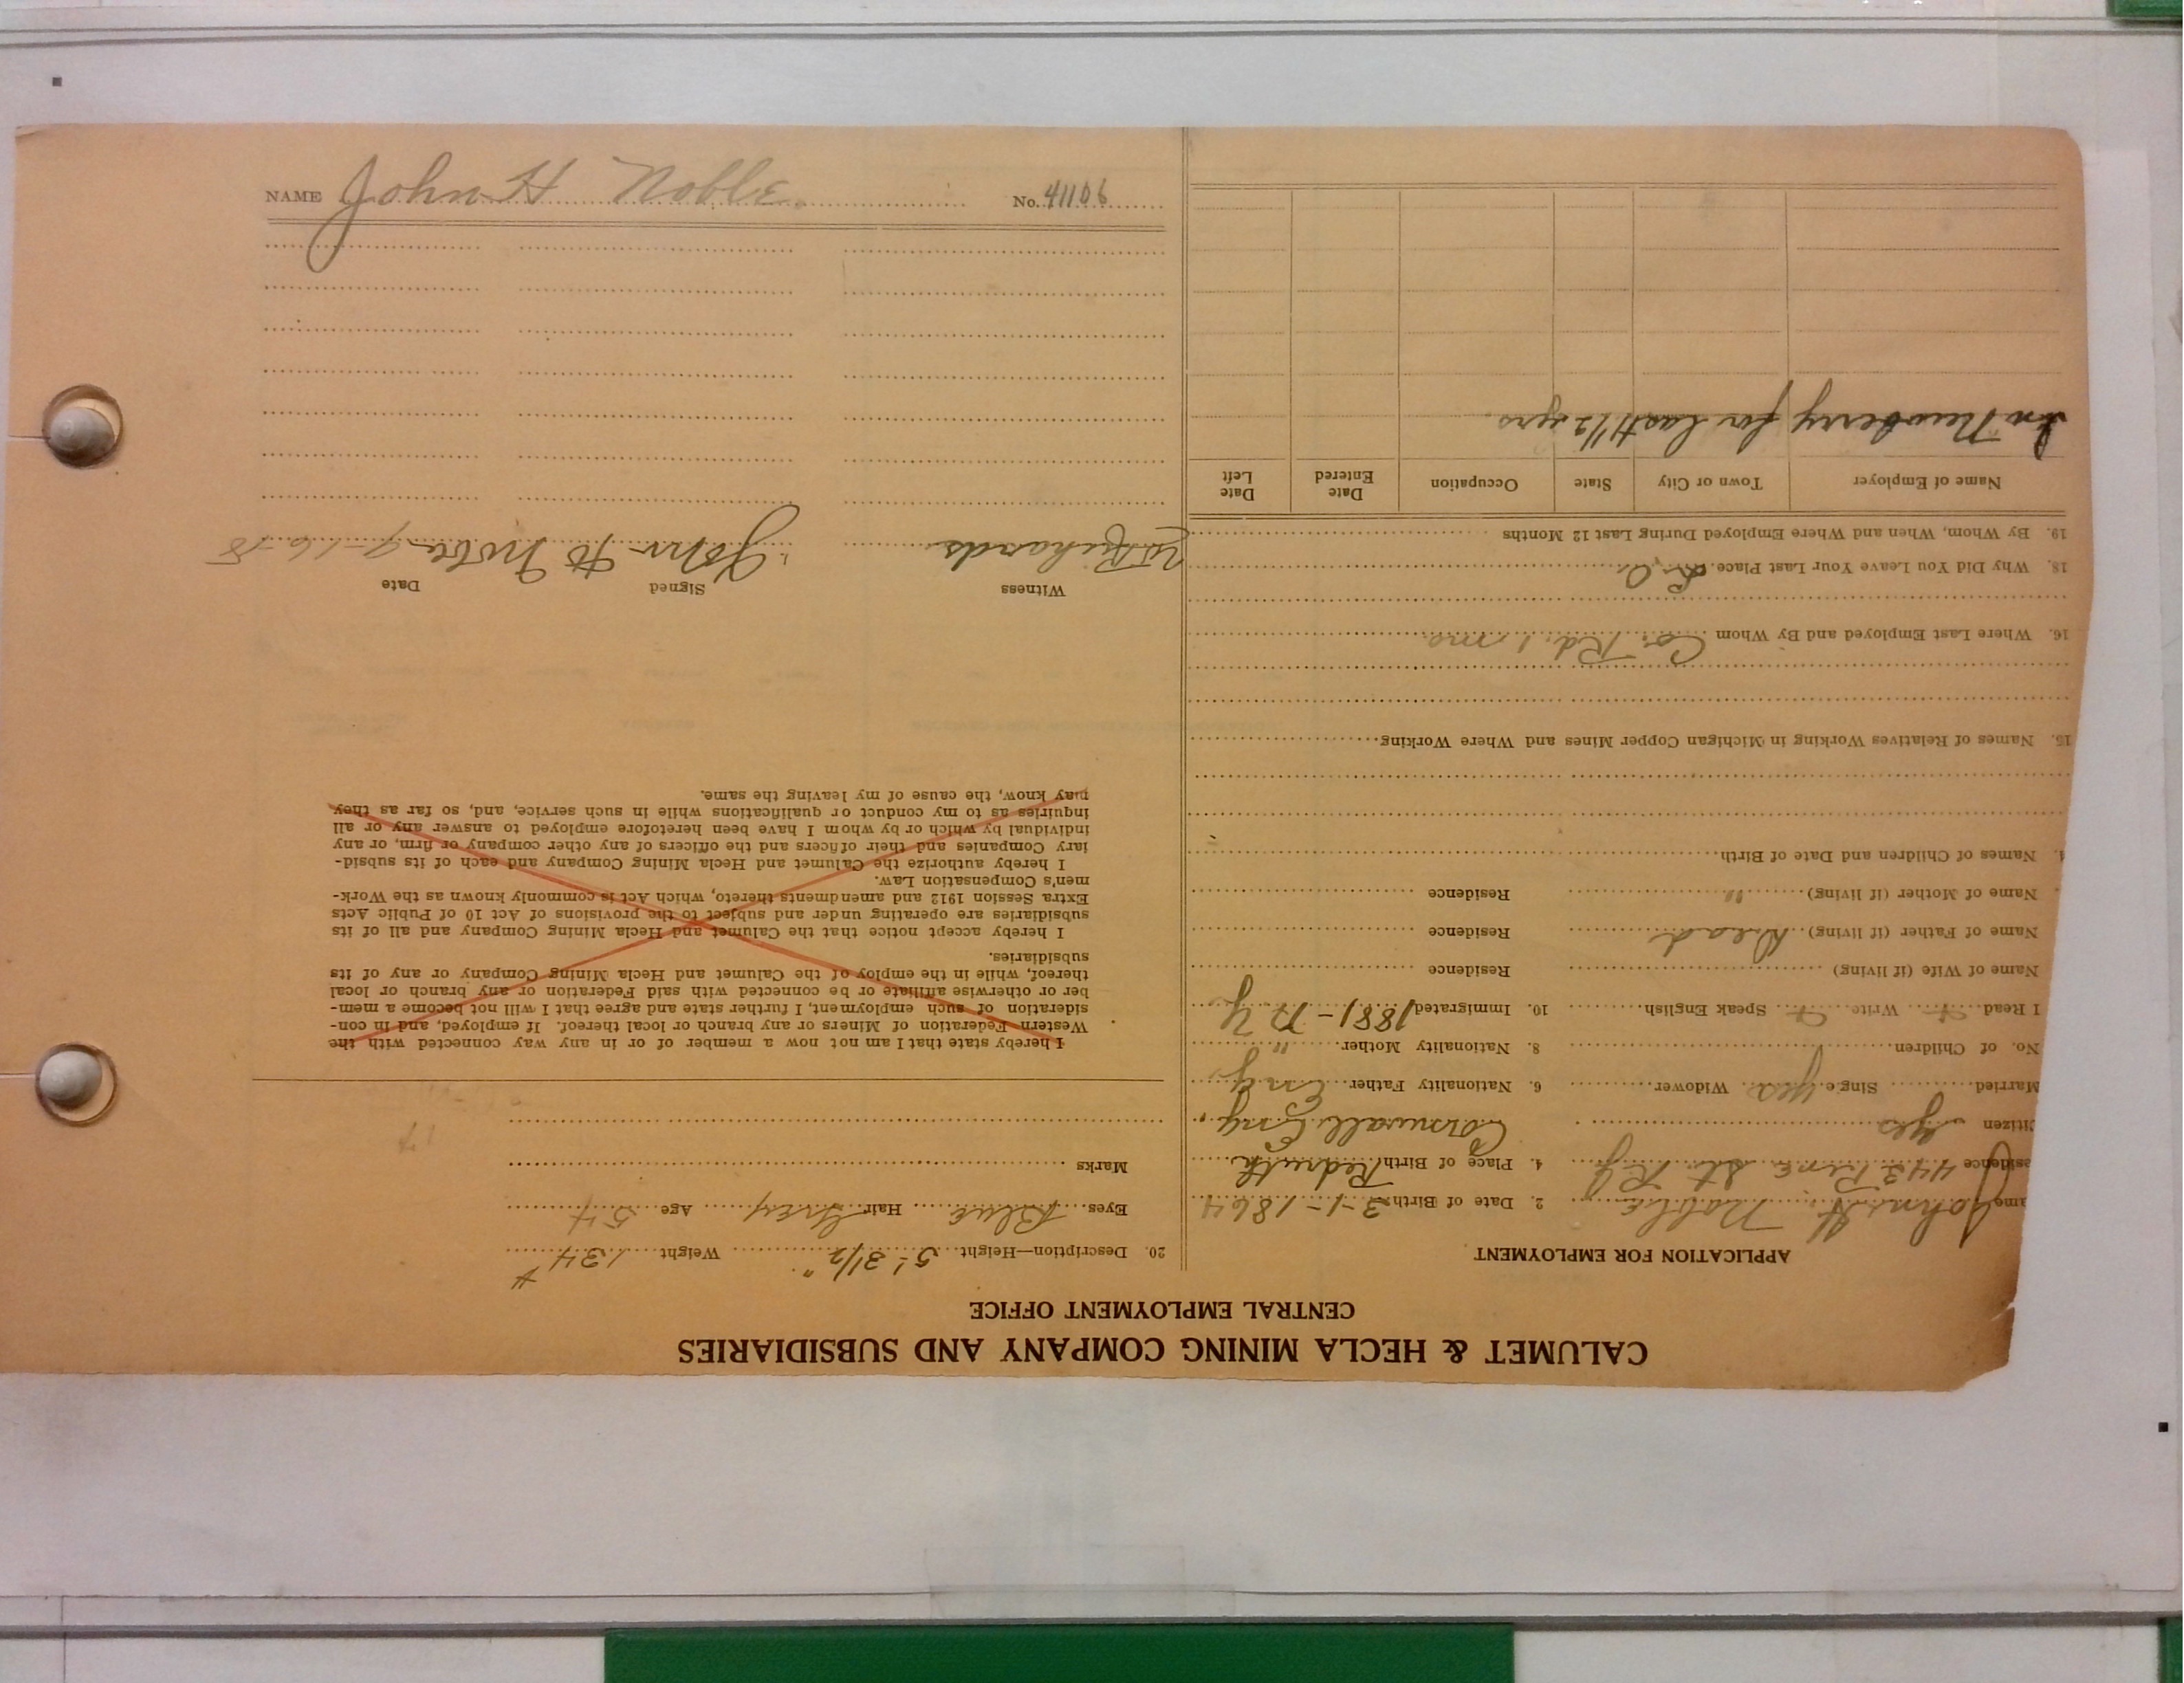 NAME John H Noble No. 41106
CALUMET & HECLA MINING COMPANY AND SUBSIDIARIES
CENTRAL EMPLOYMENT OFFICE
APPLICATION FOR EMPLOYMENT
ame John H. Noble 2. Date of Birth 3-1-1864
esidence 443 Pine St. 4. Place of Birth Redruth
itizen Yes Cornwall Eng.
Married Single yes Widower 6. Nationality Father Eng
No. of Children 8. Nationality Mother "
I Read Write Speak English 10. Immigrated 1881 - N Y
Name of Wife (if living) Residence
Name of Father (if living) Dead Residence
Name of Mother (if living) " Residence
4. Names of Children and Date of Birth
15. Names of Relatives Working in Michigan Copper Mines and Where Working
16. Where Last Employed and By Whom Co. Rd. 1 mo
18. Why Did You Leave Your Last Place
19. By Whom, When and Where Employed During Last 12 Months
Name of Employer Town or City State Occupation Date Entered Date Left
In Newberry for last 1 1/2 yrs.
20. Description—Height 5' 3 1/2" Weight 134 #
Eyes Blue Hair Grey Age 54
Marks
17
I hereby state that I am not now a member of or in any way connected with the
Western Federation of Miners or any branch or local thereof. If employed, and in con-
sideration of such employment, I further state and agree that I will not become a mem-
ber or otherwise affiliate or be connected with said Federation or any branch or local
thereof, while in the employ of the Calumet and Hecla Mining Company or any of its
subsidiaries.
I hereby accept notice that the Calumet and Hecla Mining Company and all of its
subsidiaries are operating under and subject to the provisions of Act 10 of Public Acts
Extra Session 1912 and amendments thereto, which Act is commonly known as the Work-
men's Compensation Law.
I hereby authorize the Calumet and Hecla Mining Company and each of its subsid-
iary Companies and their officers and the officers of any other company or firm, or any
individual by which or by whom I have been heretofore employed to answer any or all
inquiries as to my conduct or qualifications while in such service, and, so far as they
may know, the cause of my leaving the same.
Witness Signed Date
Richards John H Noble 9-16-18